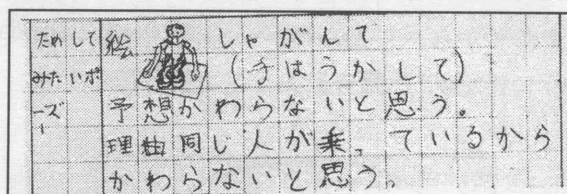 ためして
みたいポ
ーズ
絵 しゃがんて
(手はうかして)
予想かわらないと思う。
理由同じ人が乗っているから
かわらないと思う。